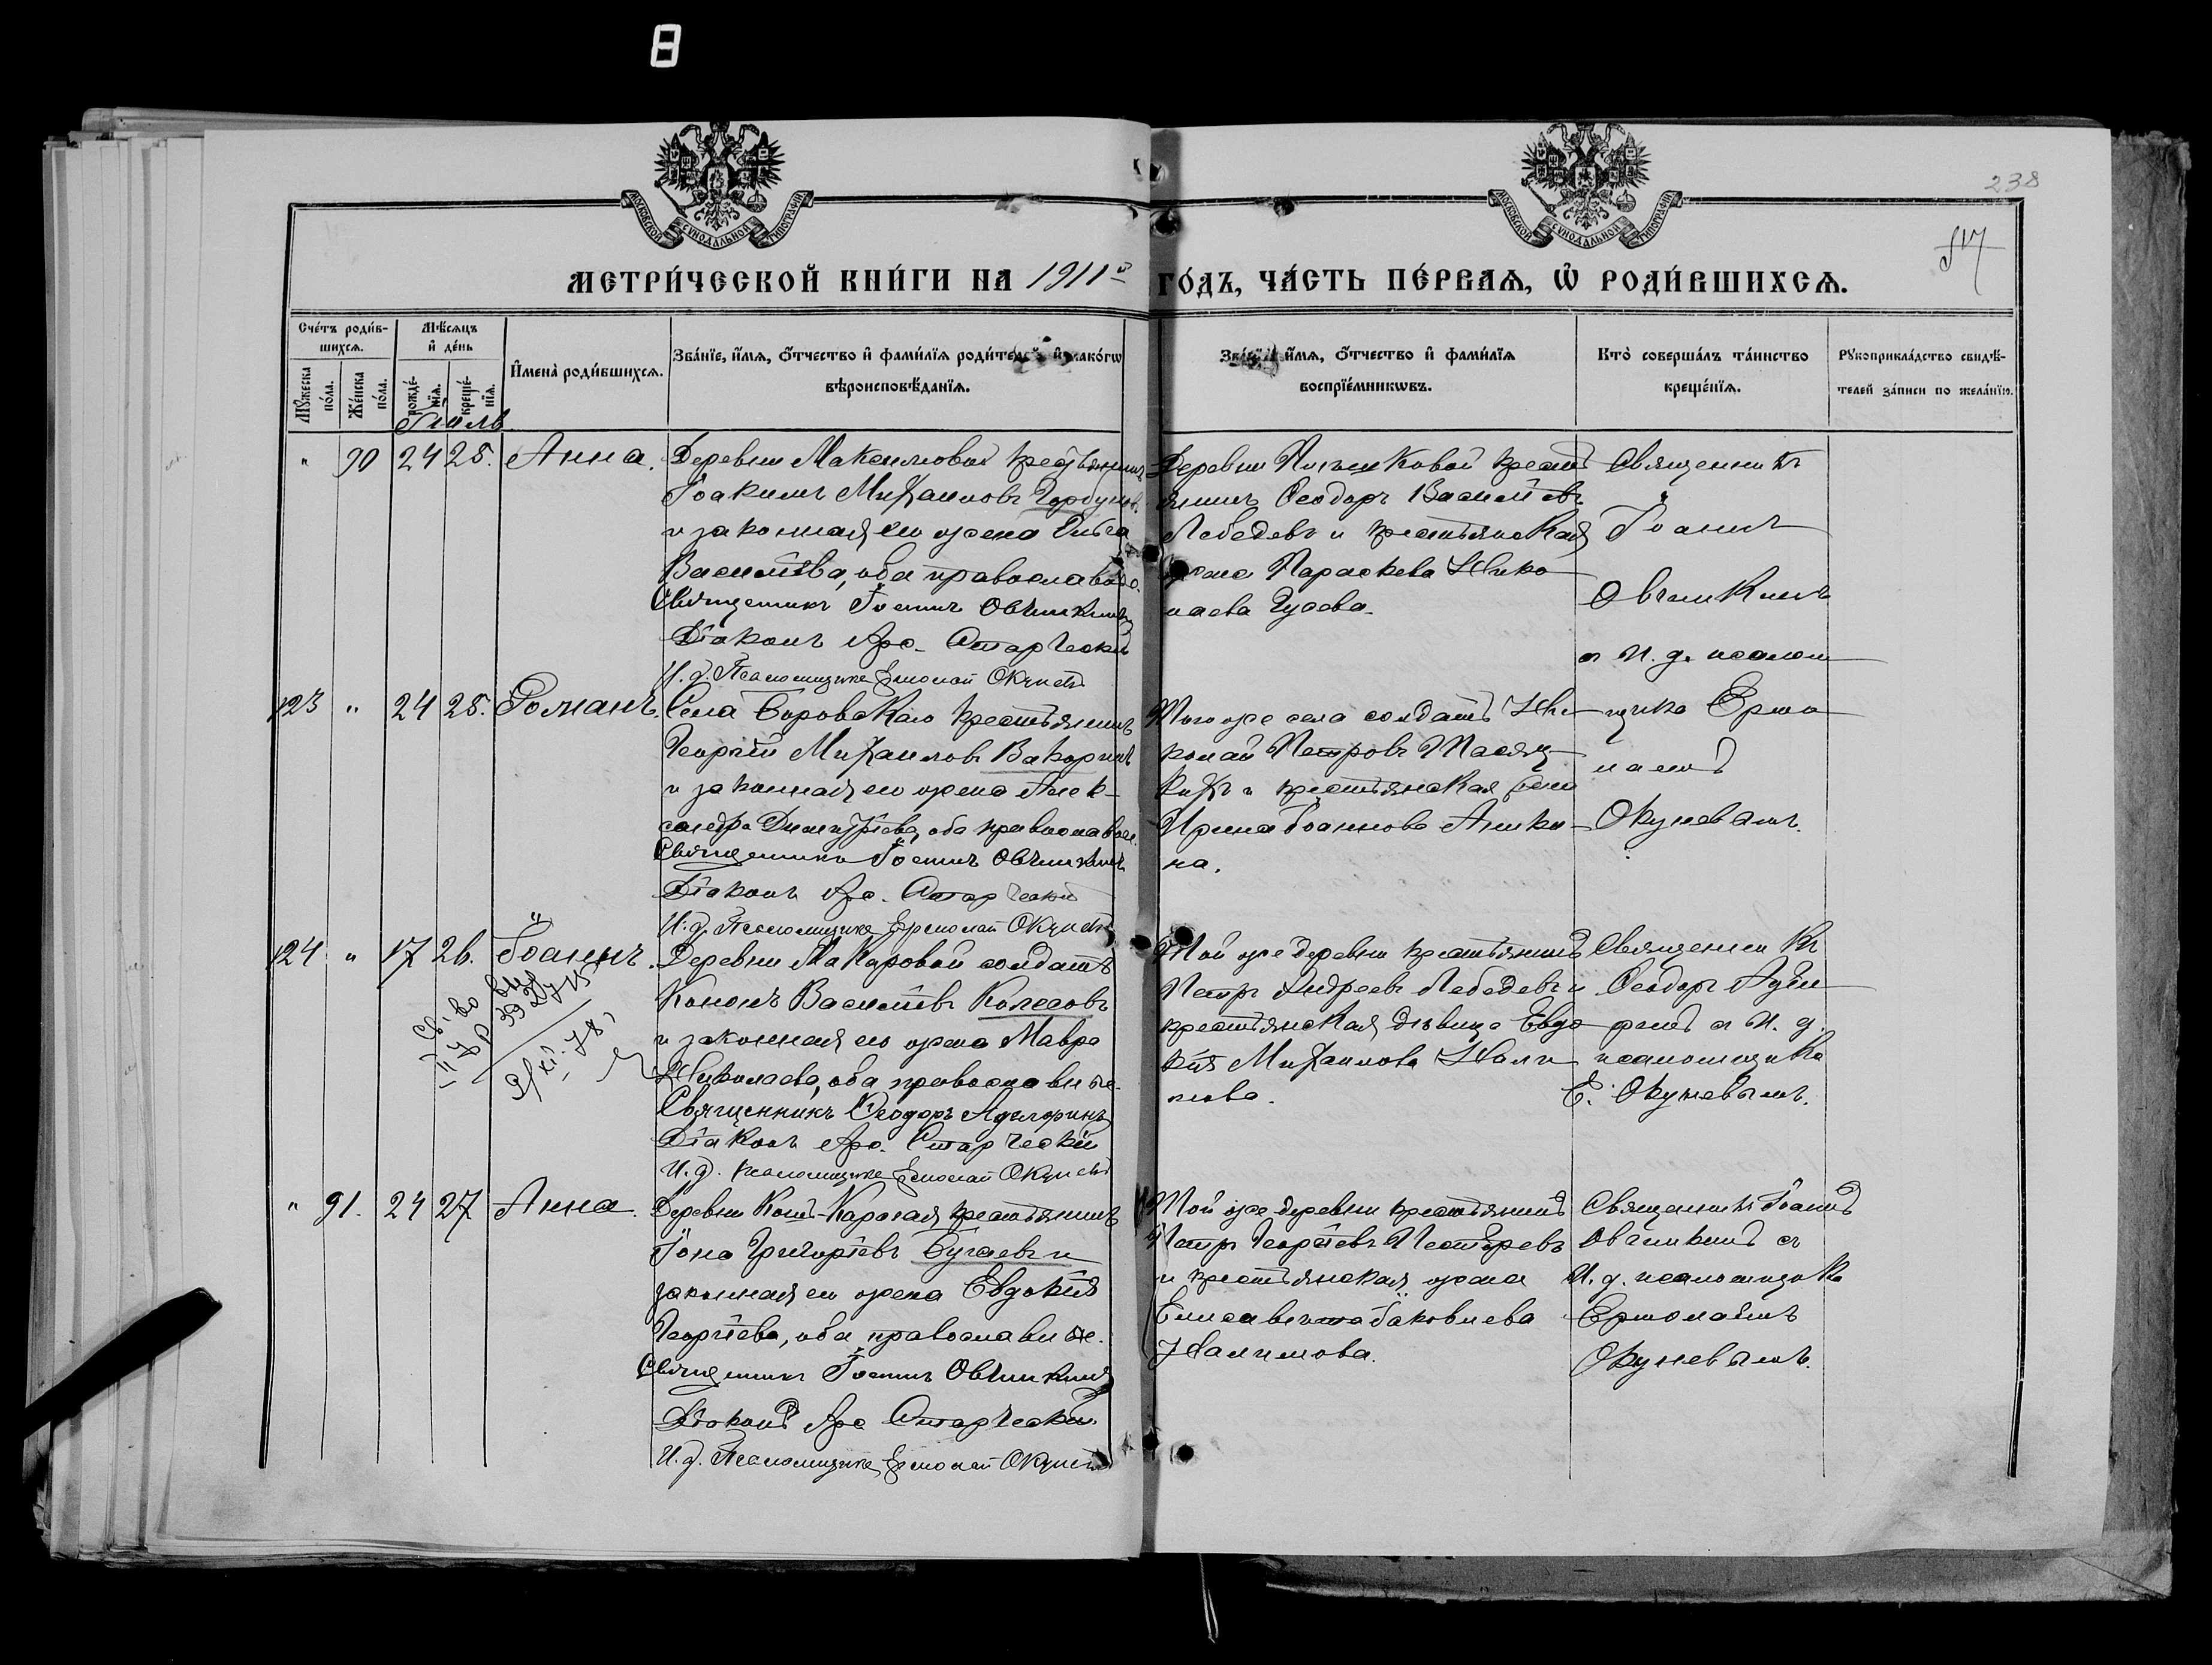 238
517
МОСКОВСКОЙ СѴНОДАЛЬНОЙ ТИПОГРАФІИ
МОСКОВСКОЙ СѴНОДАЛЬНОЙ ТИПОГРАФІИ
МЕТРИ́ЧЕСКОЙ КНИ́ГИ НА 1911й ГО́ДЪ, ЧА́СТЬ ПЕ́РВАЯ, Ѡ҆ РОДИ́ВШИХСѦ.
Сче́тъ роди́в-
шихсѧ.
Мꙋ́жеска
по́ла.
Же́нска
по́ла.
Мѣ́сѧцъ
и҆ де́нь
рожде́-
нїѧ.
креще́-
нїѧ.
И҆мена̀ роди́вшихсѧ.
Зва́нїе, и҆́мѧ, ѻ҆́тчество и҆ фами́лїѧ роди́телей, и҆ како́гѡ
вѣроисповѣ́данїѧ.
Зва́нїе, и҆́мѧ, ѻ҆́тчество и҆ фами́лїѧ
воспрїе́мникѡвъ.
Кто̀ соверша́лъ та́инство
креще́нїѧ.
Рꙋкоприкла́дство свидѣ́-
телей за́писи по жела́нїю.
Іюль
" 90 24 25. Анна.
Деревни Максимовой крестьянинъ
Іоакимъ Михаиловъ Горбуновъ
и законная его жена
Васильева, оба православно.
Священникъ Іоаннъ Овчинкинъ
Діаконъ Аре. Старческій
И. д. Псаломщика Ермолай Окуневъ
Деревни крест
янинъ Ѳеодоръ Васильевъ
Лебедевъ и крестьянская
жена Параскева Нико
лаева Гусева.
Священникъ
Іоаннъ
Овчинкинъ
съ И. д. псалом
щика Ермо
лаемъ
Окуневымъ.
123 " 24 25. Романъ.
Села Боровскаго крестьянинъ
Георгій Михаиловъ Вакоринъ
и законная его жена Алек-
сандра Димитріева, оба православн.
Священникъ Іоаннъ Овчинкинъ
Діаконъ Аре. Старческій
И. д. Псаломщика Ермолай Окуневъ
Того же села солдатъ Ни
колай Петровъ
и крестьянская
Ирина Іоаннова Аники-
на.
124 " 17 26. Іоаннъ.
Деревни Макаровой солдатъ
Кононъ Васильевъ Колесовъ
и законная его жена Мавра
Николаева, оба православные.
Священникъ Ѳеодоръ
Діаконъ Аре. Старческій
И. д. псаломщика Ермолай Окуневъ
Той же деревни крестьянинъ
Петръ Андреевъ Лебедевъ и
крестьянская дѣвица Евдо
кія Михаилова Нали
мова.
Священникъ
Ѳеодоръ
съ И. д.
псаломщика
Е. Окуневымъ.
Св-во
" 91. 24 27 Анна.
Деревни крестьянинъ
Іона Григорьевъ Бугаевъ и
законная его жена Евдокія
Георгіева, оба православные.
Священникъ Іоаннъ Овчинкинъ
Діаконъ Аре Старческій
И. д. Псаломщика Ермолай Окуневъ
Той же деревни крестьянинъ
Петръ Георгіевъ Пестеревъ
и крестьянская жена
Елисавета Іаковлева
Налимова.
Священникъ Іоаннъ
Овчинкинъ съ
И. д. псаломщика
Ермолаемъ
Окуневымъ.